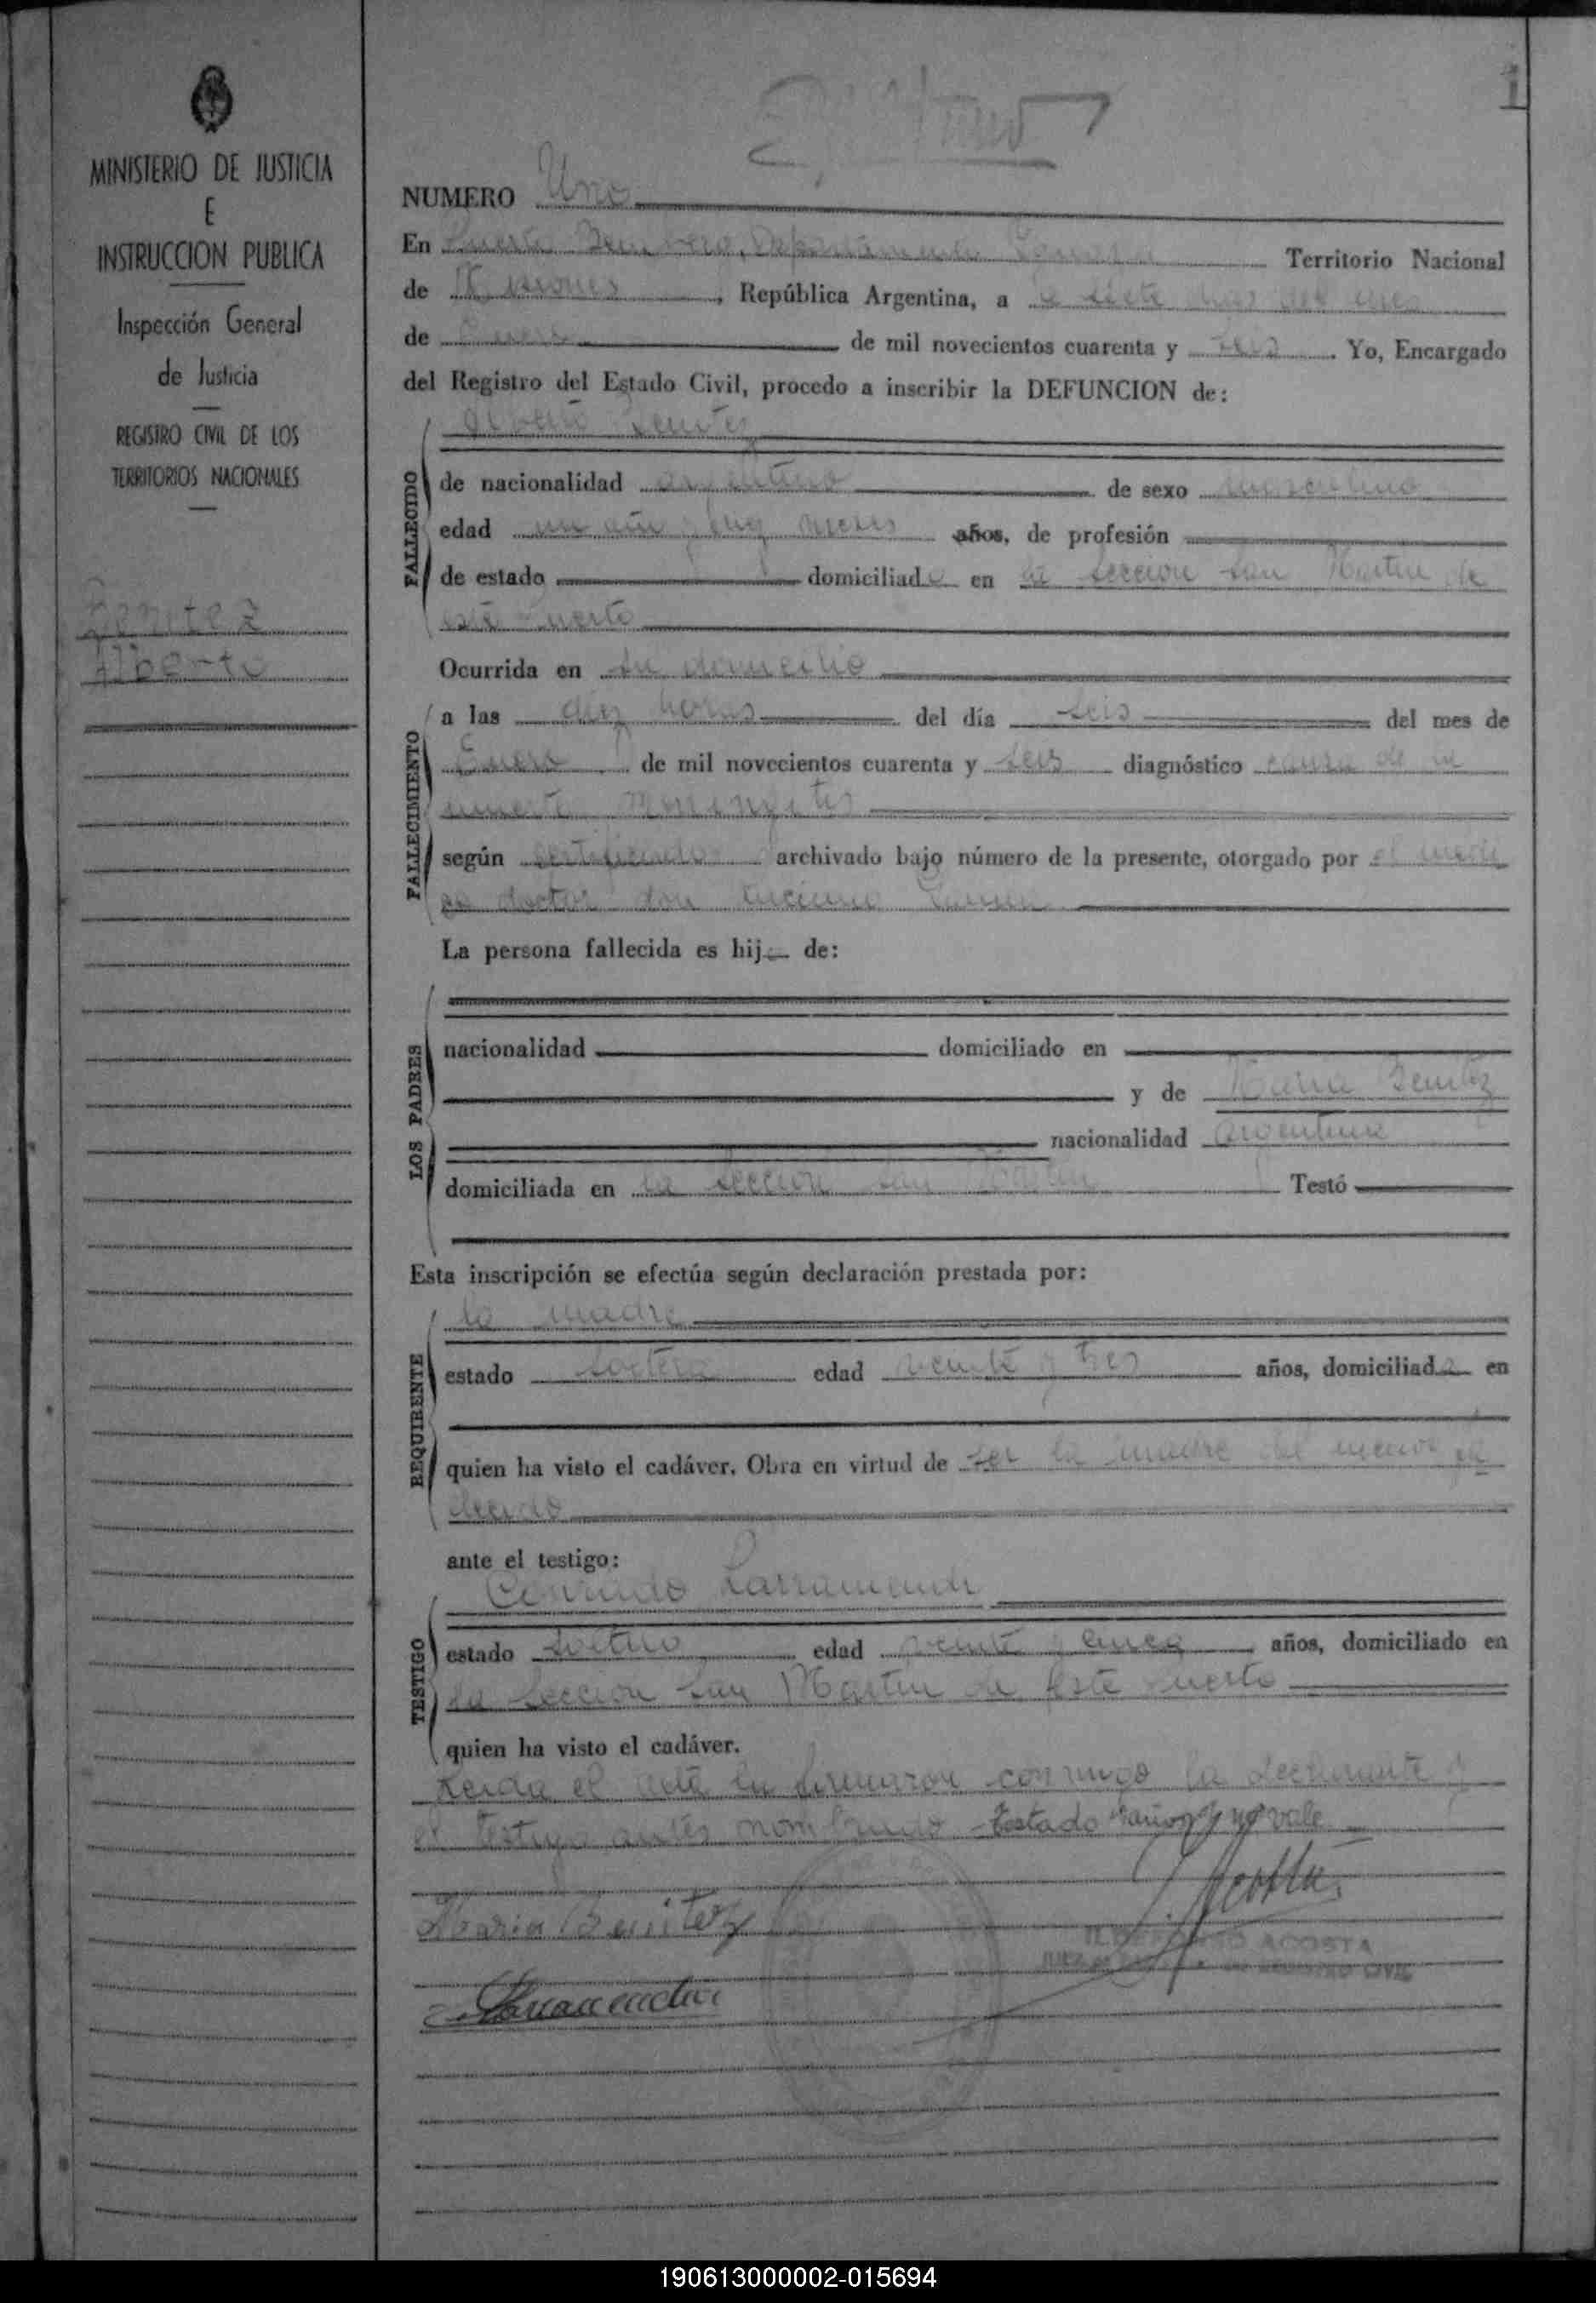 1
MINISTERIO DE JUSTICIA
E
INSTRUCCION PUBLICA
Inspección General
de Justicia
REGISTRO CIVIL DE LOS
TERRITORIOS NACIONALES
Benitez
Alberto
NUMERO Uno
En Puerto Departamento Territorio Nacional
de Misiones, República Argentina, a siete dias del mes
de Enero de mil novecientos cuarenta y seis. Yo, Encargado
del Registro del Estado Civil, procedo a inscribir la DEFUNCION de:
Alberto Benitez
FALLECIDO
de nacionalidad argentino de sexo masculino
edad un año y diez meses años, de profesión
de estado domiciliado en la sección San Martin de
este Puerto
Ocurrida en su domicilio
FALLECIMIENTO
a las diez horas del día seis del mes de
Enero de mil novecientos cuarenta y seis diagnóstico causa de la
muerte Meningitis
según certificado archivado bajo número de la presente, otorgado por el medi
co doctor don Luciano
La persona fallecida es hij de:
LOS PADRES
nacionalidad domiciliado en
y de Maria Benitez
nacionalidad argentina
domiciliada en la sección San Martin Testó
Esta inscripción se efectúa según declaración prestada por:
REQUIRENTE
la madre
estado soltera edad veinte y tres años, domiciliada en
quien ha visto el cadáver. Obra en virtud de ser la madre del menor fa
llecido
ante el testigo:
Conrado Larramendi
TESTIGO
estado soltero edad veinte y cinco años, domiciliado en
la Sección San Martin de este Puerto
quien ha visto el cadáver.
Leida el acta la firmaron conmigo la declarante y
el testigo antes nombrado - Testado "años" no vale
Acosta
Maria Benitez
ILDEFONSO ACOSTA
JUEZ DE CIVIL
Larramendi
190613000002-015694